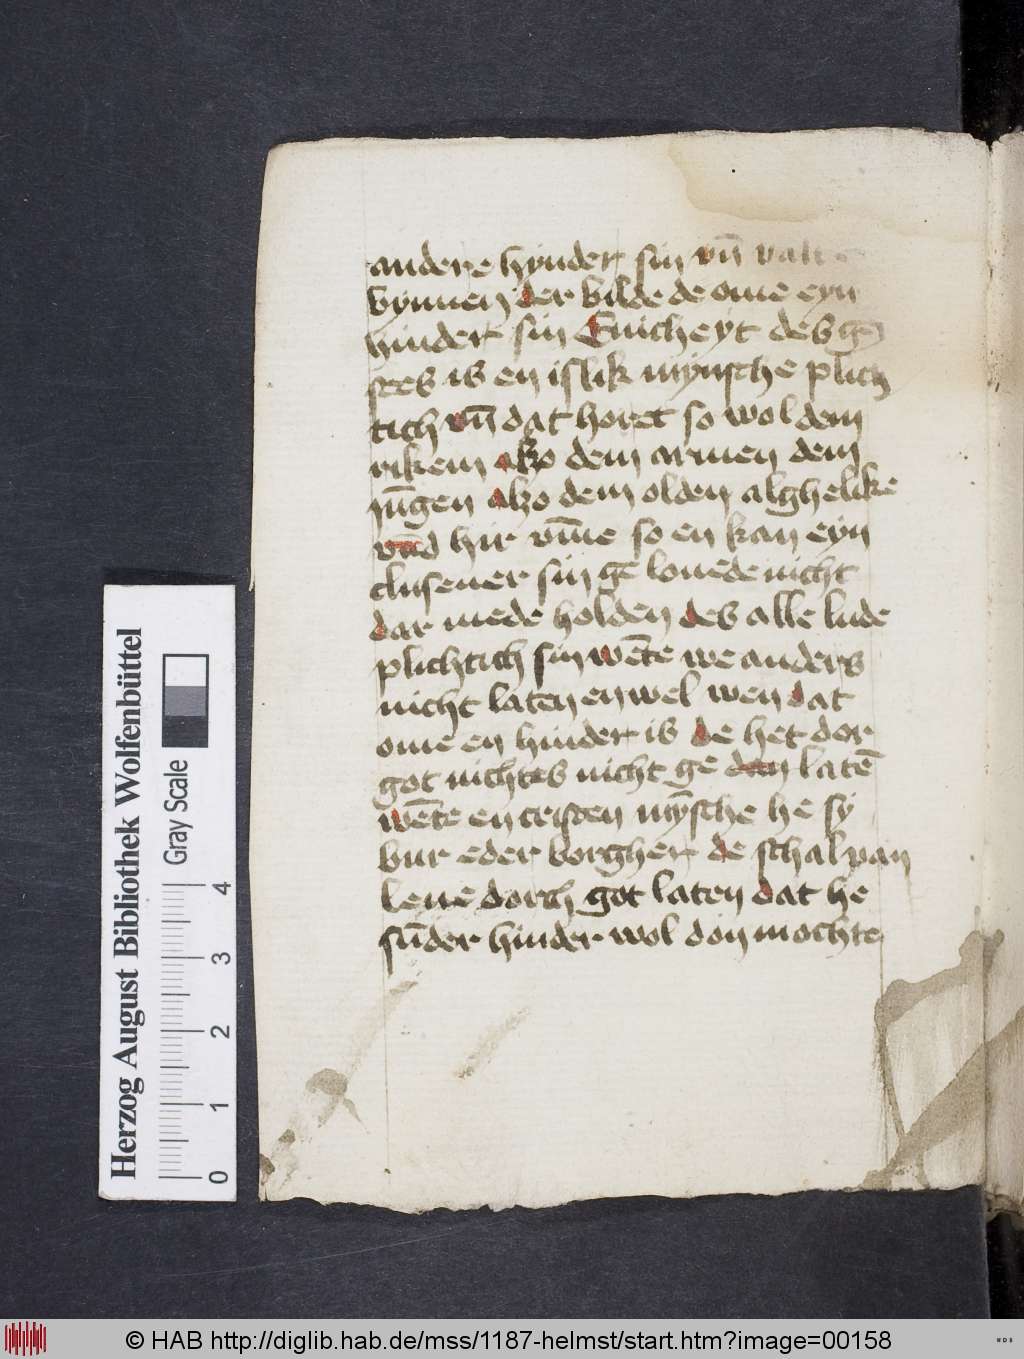 andere hynder sin vn̄
bynnen der bilde de ome eyn
hinder sin Enicheyt des ge
stes is en islik mynsche plich
tich vn̄ dat horet so wol dem
rikem alzo dem armen dem
iūgen alzo dem olden alghelike
vnd hir vm̄e so en kan eyn
clusener sin ge louede nicht
dar mede holden des alle lude
plichtich sin wēte we anders
nicht laten en wel wen dat
ome en hinder is de het dor
got nichtes nicht ge laten̄
wēte en cristen mȳsche he sy
bur eder borgher de schal van
leue dorch got laten dat he
sūder hinder wol don mochte
Herzog August Bibliothek Wolfenbüttel
Gray Scale
0 1 2 3 4
© HAB http://diglib.hab.de/mss/1187-helmst/start.htm?image=00158
WDB